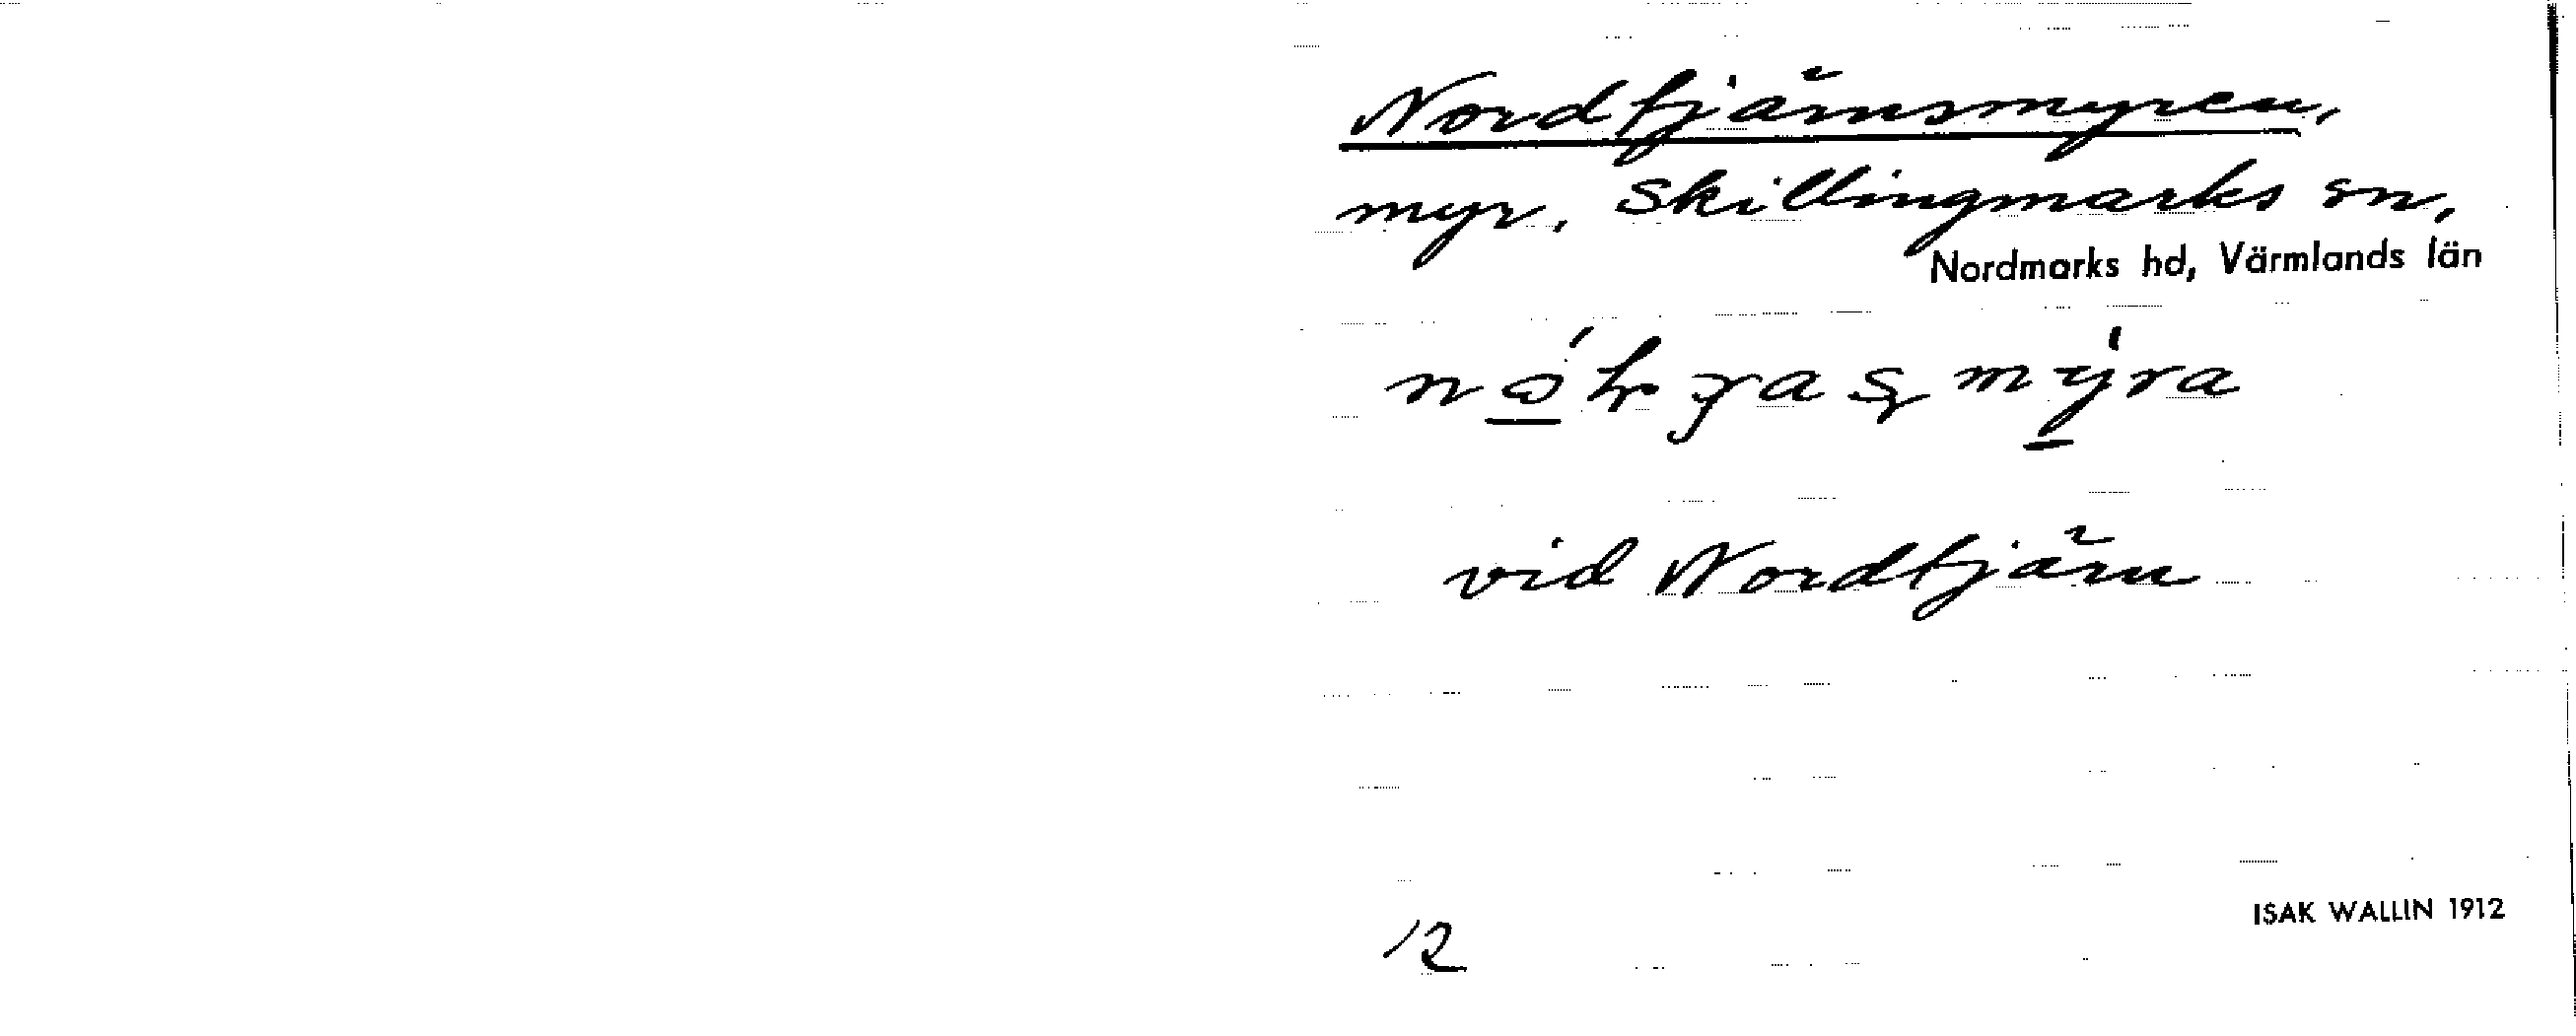 Nordtjärnsmyren,
myr. Skillingmarks sn,
Nordmarks hd, Värmlands län
vid Nordtjärn
12
ISAK WALLIN 1912